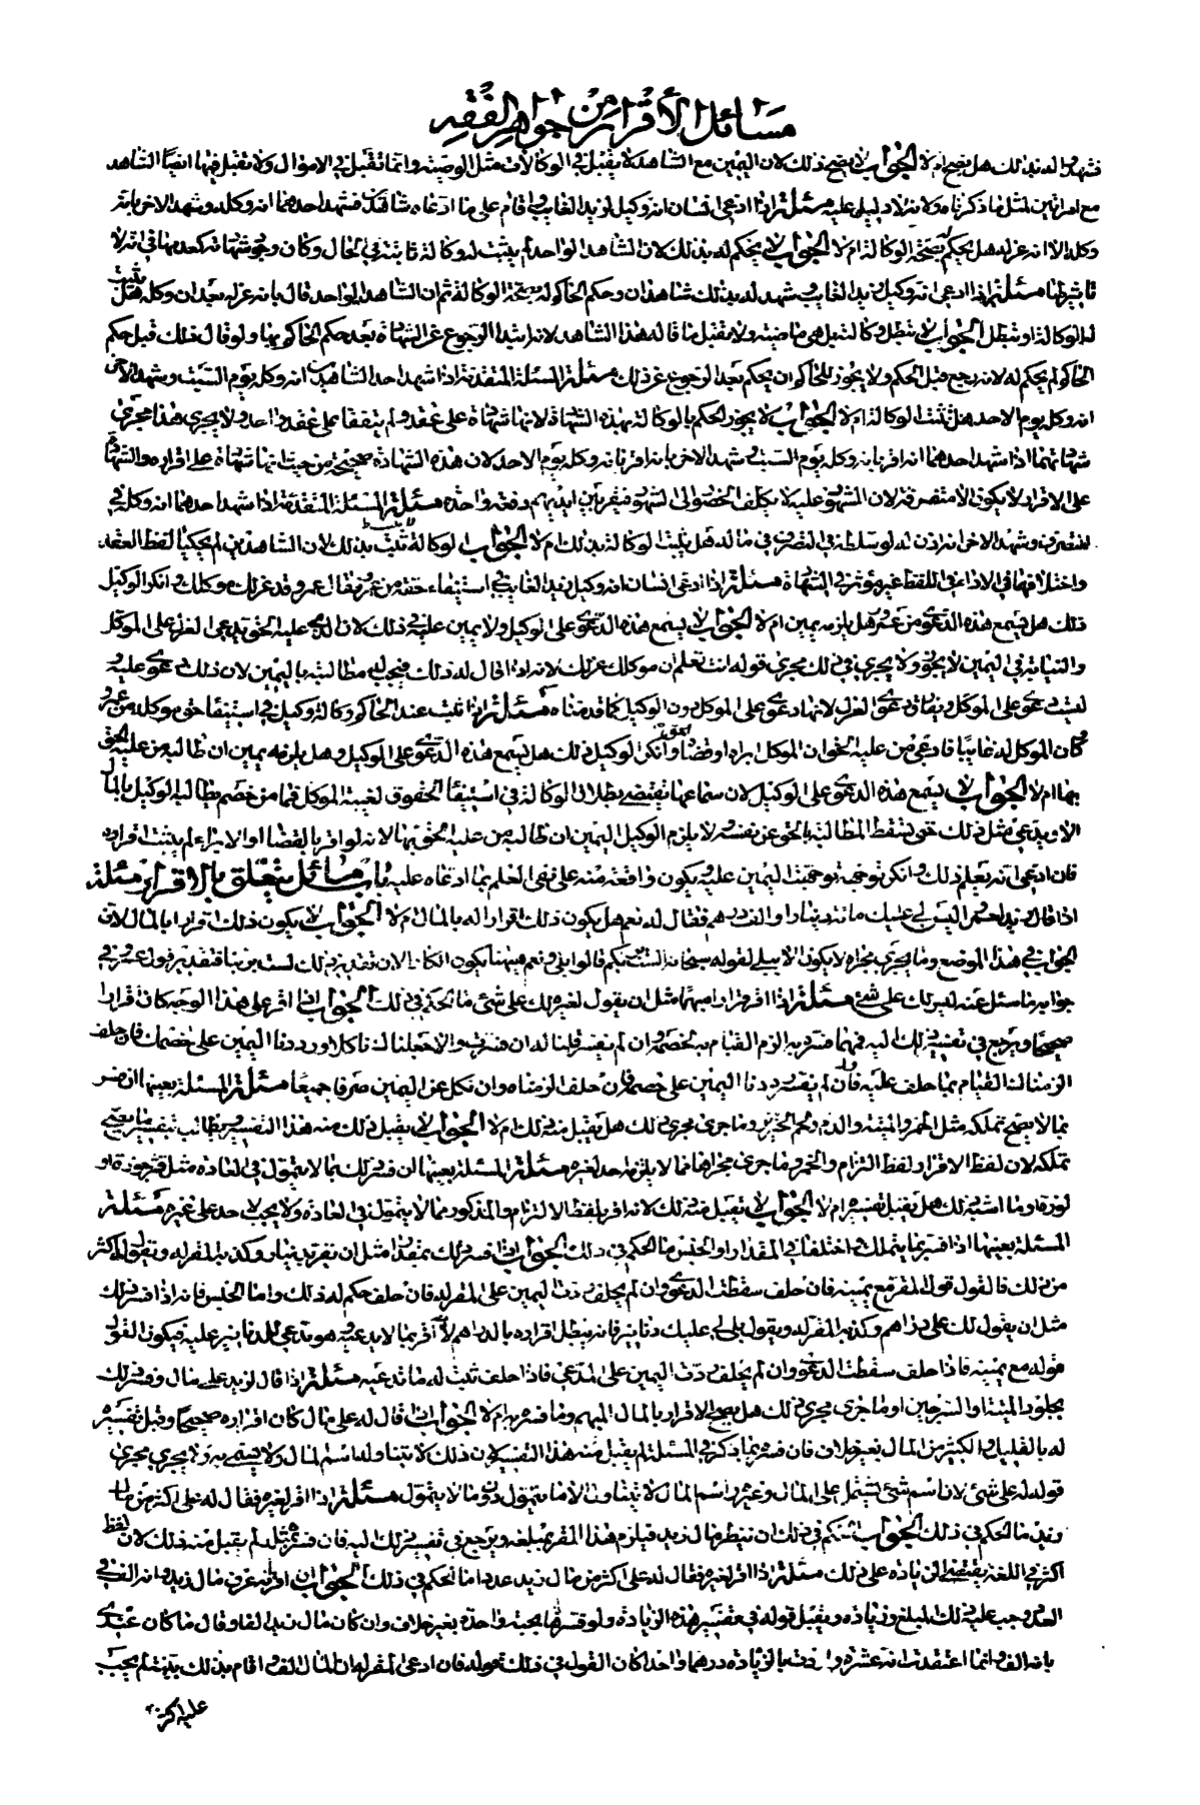 مسائل الأقرار من جواهر الفقه
فشهدا له بذلك هل يصح ام لا الجواب لا يصح ذلك لان اليمين مع الشاهد لا يقبل في الوكالات مثل الوصية وانما تقبل في الاموال ولا تقبل فيها ايضا الشاهد
مع امراتين لمثل ما ذكرناه ولانه لا دليل عليه مسئلة اذا ادعى انسان انه وكيل لزيد الغايب واقام على ما ادعاه شاهدين فشهد احدهما انه وكله وشهد الاخر بانه
وكله الا انه عزله هل يحكم بصحة الوكالة ام لا الجواب لا يحكم له بذلك لان الشاهد الواحد لم يثبت له وكالة ثابتة في الحال وكان وجود شهادته كعدمها في انه لا
تاثير لها مسئلة اذا ادعى انه وكيل زيد الغايب وشهد له بذلك شاهدان وحكم الحاكم له بصحة الوكالة ثم ان الشاهد الواحد قال بانه عزله بعد ان وكله هل تثبت
له الوكالة او تبطل الجواب لا تبطل وكالته بل هي ماضية ولا يقبل ما قاله هذا الشاهد لانه ابتدا الرجوع عن الشهادة بعد حكم الحاكم بها ولو قال ذلك قبل حكم
الحاكم لم يحكم له لانه رجع قبل الحكم ولا يجوز للحاكم ان يحكم بعد الرجوع عن ذلك مسئلة المسئلة المتقدمة اذا شهد احد الشاهدين انه وكله يوم السبت وشهد الاخر
انه وكله يوم الاحد هل تثبت الوكالة ام لا الجواب لا يجوز الحكم بالوكالة بهذه الشهادة لانها شهادة على عقد ولم يتفقا على عقد واحد ولا يجري هذا مجرى
شهادتهما اذا شهد احدهما انه اقر بانه وكله يوم السبت وشهد الاخر بانه اقر بانه وكله يوم الاحد لان هذه الشهادة صحيحة من حيث انها شهادة على اقراره والشهادة
على الاقرار لا يكون الا متفرقة لان المشهود عليه لا يكلف الحضور الى شهود متفرقين ليشهدهم دفعة واحدة مسئلة المسئلة المتقدمة اذا شهد احدهما انه وكله في
التصرف وشهد الاخر انه اذن له او سلطه في التصرف في ماله هل يثبت الوكالة بذلك ام لا الجواب الوكالة تثبت بذلك لان الشاهدين لم يحكيا لفظ العقد
واختلافهما في الاداء في اللفظ غير مؤثر في الشهادة مسئلة اذا ادعى انسان انه وكيل زيد الغايب في استيفاء حقه من عمرو فقال عمرو قد عزلك موكلك وانكر الوكيل
ذلك هل يسمع هذه الدعوى من عمرو وهل يلزمه يمين ام لا الجواب لا يسمع هذه الدعوى على الوكيل ولا يمين عليه في ذلك لان المدعى عليه الحق يدعي العزل على الموكل
والنيابة في اليمين لا يجوز ولا يجري في ذلك مجرى قوله انت تعلم ان موكلك عزلك لانه اذا قال له ذلك فيجب مطالبته باليمين لان ذلك دعوى عليه و
ليست دعوى على الموكل وتفارق دعوى العزل لانها دعوى على الموكل دون الوكيل كما قدمناه مسئلة اذا ثبت عند الحاكم وكالة وكيل في استيفا حق موكله من عمرو
وكان الموكل له غايبا فادعى من عليه الحق ان الموكل ابراه او قضاه الحق وانكر الوكيل ذلك هل يسمع هذه الدعوى على الوكيل وهل يلزمه يمين ان طالبه من عليه الحق
بها ام لا الجواب لا يسمع هذه الدعوى على الوكيل لان سماعها يقتضي بطلان الوكالة في استيفا الحقوق لغيبة الموكل فما من خصم يطالبه الوكيل بالمال
الا ويدعي مثل ذلك حتى يسقط المطالبة بالحق عن نفسه ولا يلزم الوكيل اليمين ان طالبه من عليه الحق بها لانه لو اقر بالقضا او الابراء لم يثبت اقراره
فان ادعى انه يعلم ذلك وانكر توجهت اليمين عليه ويكون واقعة منه على نفي العلم بما ادعاه عليه باب مسائل يتعلق بالاقرار مسئلة
اذا قال زيد لعمرو اليس لي عليك مائة دينار او الف درهم فقال له نعم هل يكون ذلك اقرارا له بالمال ام لا الجواب لا يكون ذلك اقرارا بالمال لان
الجواب في هذا الموضع وما يجري مجراه لا يكون الا ببلى لقوله سبحانه الست بربكم قالوا بلى ونعم هيهنا يكون انكارا لان تقدير ذلك لست بربنا
جوابه ما سئل عنه ليس لك على شئ مسئلة اذا اقر اقرارا مبهما مثل ان يقول لغيره لك على شئ ما الحكم في ذلك الجواب اذا اقر على هذا الوجه كان اقرارا
صحيحا ويرجع في تفسير ذلك اليه فمهما فسره به الزم القيام به لخصمه وان لم يفسر قلنا له ان فسرت والا جعلناك ناكلا ورددنا اليمين على خصمك فان حلف
الزمناك القيام بما حلف عليه فان لم يفسر رددنا اليمين على خصمه فان حلف الزمناه وان نكل عن اليمين صرفا جميعا مسئلة المسئلة بعينها ان فسر
بما لا يصح تملكه مثل الخمر والميتة والدم ولحم الخنزير وما جرى مجرى ذلك هل يقبل منه ذلك ام لا الجواب لا يقبل ذلك منه هذا التفسير ويطالب بتفسير ما يصح
تملكه لان لفظ الاقرار لفظ التزام والخمر وما جرى مجراها مما لا يلزم احد لغيره مسئلة المسئلة بعينها ان فسر ذلك بما لا يتمول في العادة مثل قشر جوزة او
لوزة وما اشبه ذلك هل يقبل تفسيره ام لا الجواب لا يقبل منه ذلك لانه اقر بلفظ الالتزام والمذكور مما لا يتمول في العادة ولا يجب لاحد على غيره مسئلة
المسئلة بعينها اذا فسر بما يتملك واختلفا في المقدار او الجنس ما الحكم في ذلك الجواب اذا فسر ذلك بمقدار مثل ان يقر بدينار وكذبه المقر له ويقول لي اكثر
من ذلك فالقول قول المقر مع يمينه فان حلف سقطت الدعوى وان لم يحلف ردت اليمين على المقر له فان حلف حكم له بذلك واما الجنس فانه اذا فسر ذلك
مثل ان يقول لك علي دراهم وكذبه المقر له ويقول بل لي عليك دنانير فانه يبطل اقراره بالدراهم لانه اقر بما لا يدعيه وهو يدعي الدنانير عليه فيكون القول
قوله مع يمينه فاذا حلف سقطت الدعوى وان لم يحلف ردت اليمين على المدعي فاذا حلف ثبت له ما يدعيه مسئلة اذا قال لزيد علي مال وفسر ذلك
بجلود الميتة والسرجين او ما جرى مجرى ذلك هل يصح الاقرار بالمال المبهم وما فسره به ام لا الجواب اذا قال له على مال كان اقراره صحيحا وقبل تفسيره
له بالقليل والكثير من المال بغير خلاف فان فسره بما ذكر في المسئلة لم يقبل منه هذا التفسير لان ذلك لا يتناوله اسم المال ولا يسمى به ولا يجري مجرى
قوله له على شئ لان اسم شئ يشتمل على المال وغيره واسم المال لا يتناول الا ما يتمول دون ما لا يتمول مسئلة اذا اقر لغيره فقال له علي اكثر من مال
زيد ما الحكم في ذلك الجواب الحكم في ذلك ان ينظر مال زيد فيلزم هذا المقر بمبلغه ويرجع في تفسير ذلك اليه فان فسره بمثله لم يقبل منه ذلك لان لفظ
اكثر في اللغة يقتضي الزيادة على ذلك مسئلة اذا اقر لغيره فقال له علي اكثر من مال زيد عددا ما الحكم في ذلك الجواب ان اقر بانه عرف مال زيد وانه الف في
العدد وجب عليه ذلك المبلغ وزيادة ويقبل قوله في تفسير هذه الزيادة ولو فسرها بحبة واحدة بغير خلاف وان كان مال زيد الفا وقال ما كان عندي
بانه الف وانما اعتقدت انه عشرة واردت بالزيادة درهما واحدا كان القول في ذلك قوله فان ادعى المقر له ان المال الف واقام بذلك بينة لم يجب
عليه اكثر